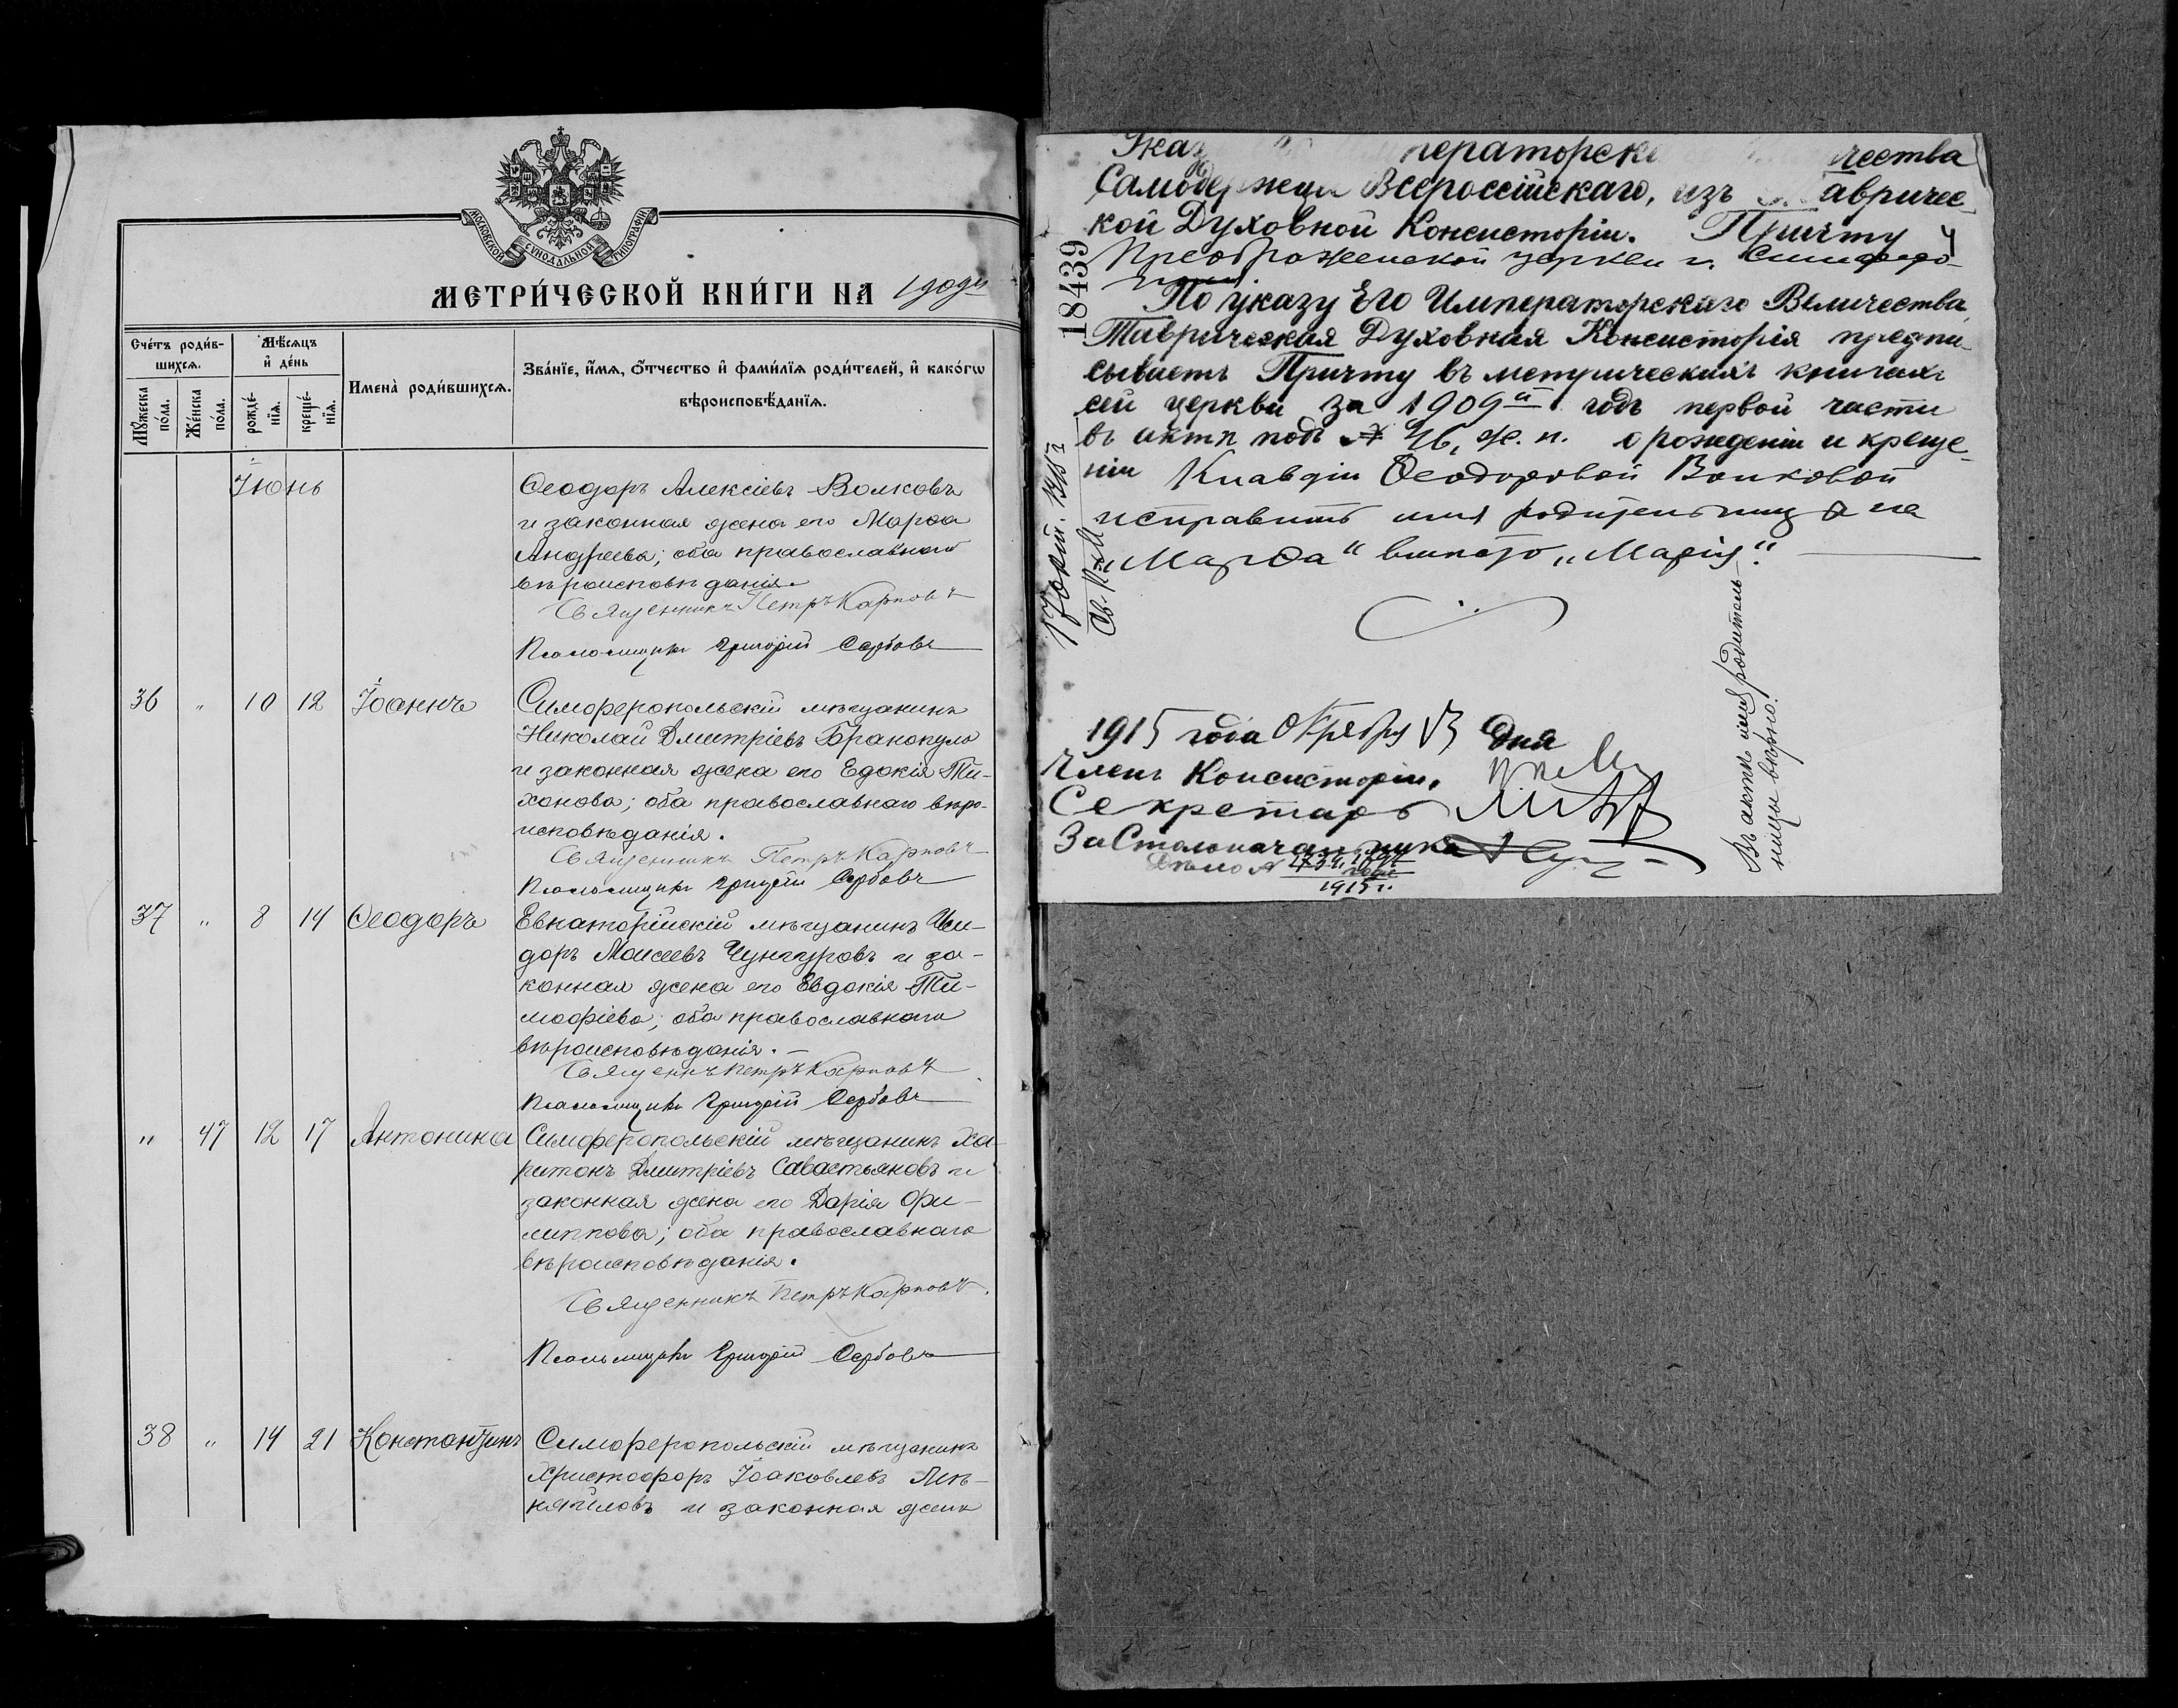 МОСКОВСКОЙ СѴНОДАЛЬНОЙ ТИПОГРАФІИ
МЕТРИ́ЧЕСКОЙ КНИ́ГИ НА
Сче́тъ роди́в-
шихсѧ.
Мꙋ́жеска
по́ла.
Же́нска
по́ла.
Мѣ́сѧцъ
и҆ де́нь
рожде́-
нїѧ.
креще́-
нїѧ.
Имена̀ роди́вшихсѧ.
Зва́нїе, и҆́мѧ, ѻ҆́тчество и҆ фами́лїѧ роди́телей, и҆ како́гѡ
вѣроисповѣ́данїѧ.
Іюнь
Ѳеодоръ Алексіевъ Волковъ
и законная жена его Марѳа
Андреева; оба православнаго
вѣроисповѣданія.
Священникъ Петръ Карповъ
Псаломщикъ Григорій Сербовъ
36 " 10 12 Іоаннъ
Симферопольскій мѣщанинъ
Николай Дмитріевъ Бранопуло
и законная жена его Евдокія Ти-
хонова; оба православнаго вѣро-
исповѣданія.
Священникъ Петръ Карповъ
Псаломщикъ Григорій Сербовъ
37 " 8 14 Ѳеодоръ
Евпаторійскій мѣщанинъ Иси-
доръ Моисеевъ Чунгуровъ и за-
конная жена его Евдокія Ти-
моѳіева; оба православнаго
вѣроисповѣданія. —
Священникъ Петръ Карповъ
Псаломщикъ Григорій Сербовъ
" 47 12 17 Антонина
Симферопольскій мѣщанинъ Ха-
ритонъ Дмитріевъ Савастьяновъ и
законная жена его Дарія Фи-
липпова; оба православнаго
вѣроисповѣданія.
Священникъ Петръ Карповъ
Псаломщикъ Григорій Сербовъ
38 " 14 21 Константинъ
Симферопольскій мѣщанинъ
Христофоръ Іоаковлевъ
и законная жена
ператорск чества
Самодержца Всероссійскаго, изъ Тавричес-
кой Духовной Консисторіи. Причту
Преображенской церкви г. Симферо-
поля
По указу Его Императорскаго Величества,
Таврическая Духовная Консисторія предпи-
сываетъ Причту въ метрическихъ книгахъ
сей церкви за 1909й годъ первой части
въ актѣ подъ № 46, ж. п. о рожденіи и креще-
ніи Клавдіи Ѳеодоровой Волковой
исправить имя родительницы на
„Марѳа“ вмѣсто „Марія“.
1915 года Октября 13 дня
Членъ Консисторіи,
Секретарь
За Столоначальника
Дѣло №
1915 г.
18439
17 окт. 1915 г.
Въ актѣ имя родитель-
ницы вѣрно.